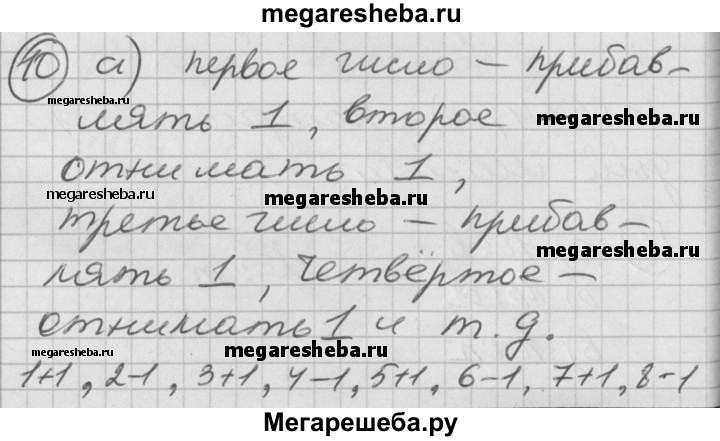 megaresheba.ru
10 а) первое число – прибав–
megaresheba.ru
лять 1, второе megaresheba.ru
отнимать 1,
megaresheba.ru megaresheba.ru
третье число – прибав–
megaresheba.ru
лять 1, четвёртое –
отнимать 1 и т. д.
megaresheba.ru megaresheba.ru
1+1, 2-1, 3+1, 4-1, 5+1, 6-1, 7+1, 8-1
Мегарешеба.ру